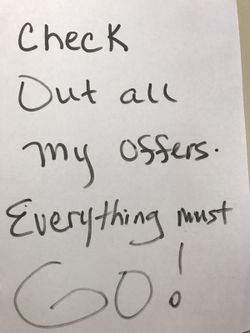 Check
Out all
my offers.
Everything must
GO!